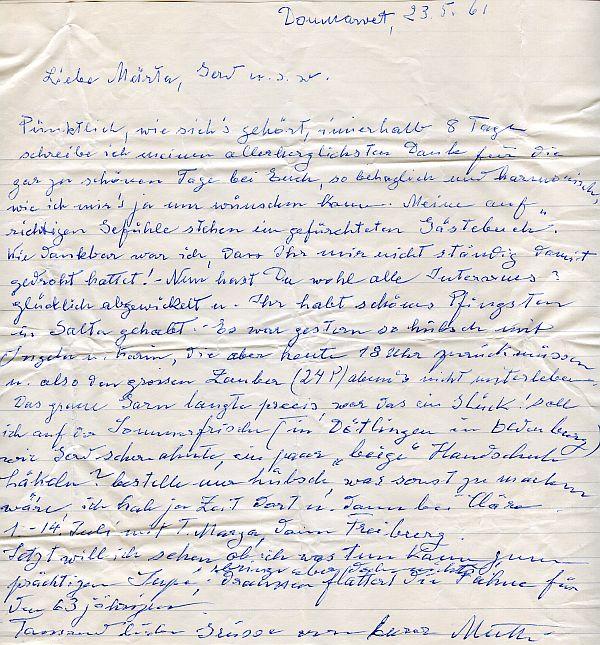 23.5.61
Liebe Märta, Gerd u.s.w.
Pünktlich, wie sich's gehört, innerhalb 8 Tage
schreibe ich meinen allerherzlichsten Dank für die
gar zu schönen Tage bei Euch, so behaglich und harmonisch,
wie ich mir's ja nur wünschen kann. Meine auf-
richtigen Gefühle stehen im gefürchteten Gästebuch.
Wie dankbar war ich, dass Ihr mir nicht ständig damit
gedroht hattet! - Nun hast Du wohl alle
glücklich abgewickelt u. Ihr habt schönes Pfingsten
in gehabt. - Es war gestern so hübsch mit
Ingela u. Karin, die aber heute 18 Uhr zurück müssen
u. also den grossen Zauber (24 P) abends nicht miterleben.
Das graue Garn langte precis, war das ein Glück! Soll
ich auf der Sommerfrische (in Dötlingen in Oldenburg)
wie Gerd schon ahnte, ein paar „beige" Handschuhe
häkeln? bestelle nur hübsch, was sonst zu machen
wäre, ich hab ja Zeit dort u. dann bei Cläre.
1.-14. Juli mit T. Marga, dann Freiberg.
Jetzt will ich sehen, ob ich was tun kann zum
prächtigen, bringe aber doch nichts
draussen flattert die Fahne für
den 63 jährigen
Tausend liebe Grüsse von Eurer Mutti